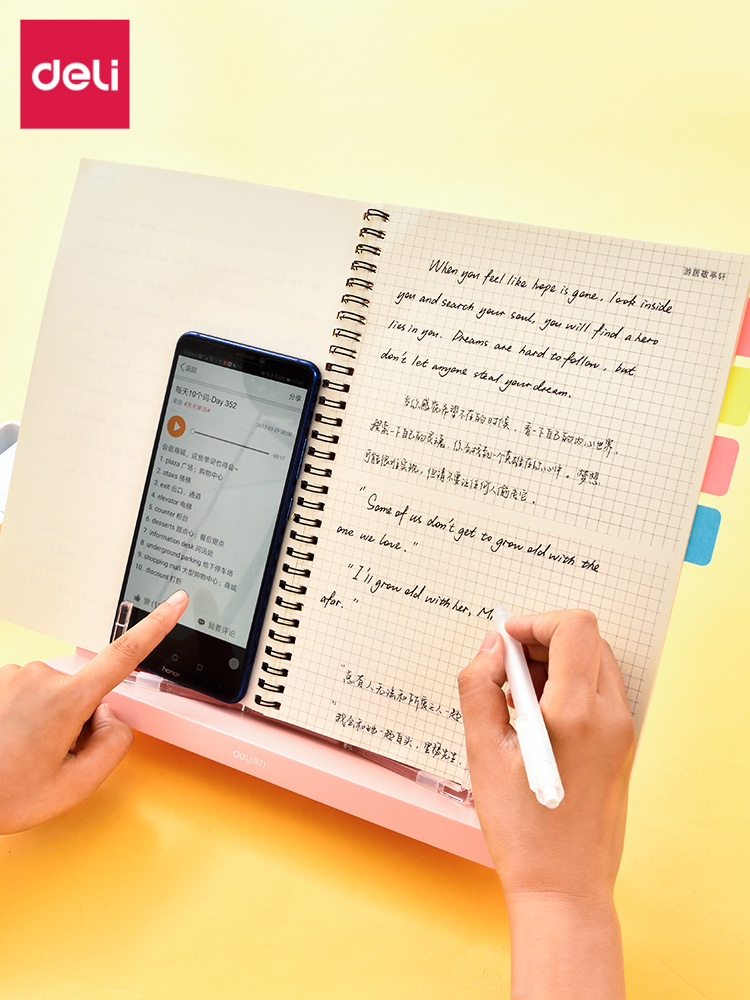 deli
返回
分享
每天10个词-Day 352
来自 #天天背词#
2017-03-29 06:00
03:17
会逛商城，这些单词也得会~
1. plaza 广场；购物中心
2. stairs 楼梯
3. exit 出口，通道
4. elevator 电梯
5. counter 柜台
6. desserts 甜点心；餐后甜点
7. information desk 问讯处
8. underground parking 地下停车场
9. shopping mall 大型购物中心；商城
10. discount 打折
赞
我要评论
honor
游居敬亭轩
When you feel like hope is gone, look inside
you and search your soul, you will find a hero
lies in you. Dreams are hard to follow, but
don't let anyone steal your dream.
当你感觉希望不在的时候，看一下自己的内心世界。
搜索一下自己的灵魂，你会找到一个英雄在你心中。梦想
可能很难实现，但请不要让任何人偷走它。
"Some of us don't get to grow old with the
one we love."
"I'll grow old with her, M
afar. "
"总有人无法和所爱之人一起
"我会和她一起白头，里格先生，
deli